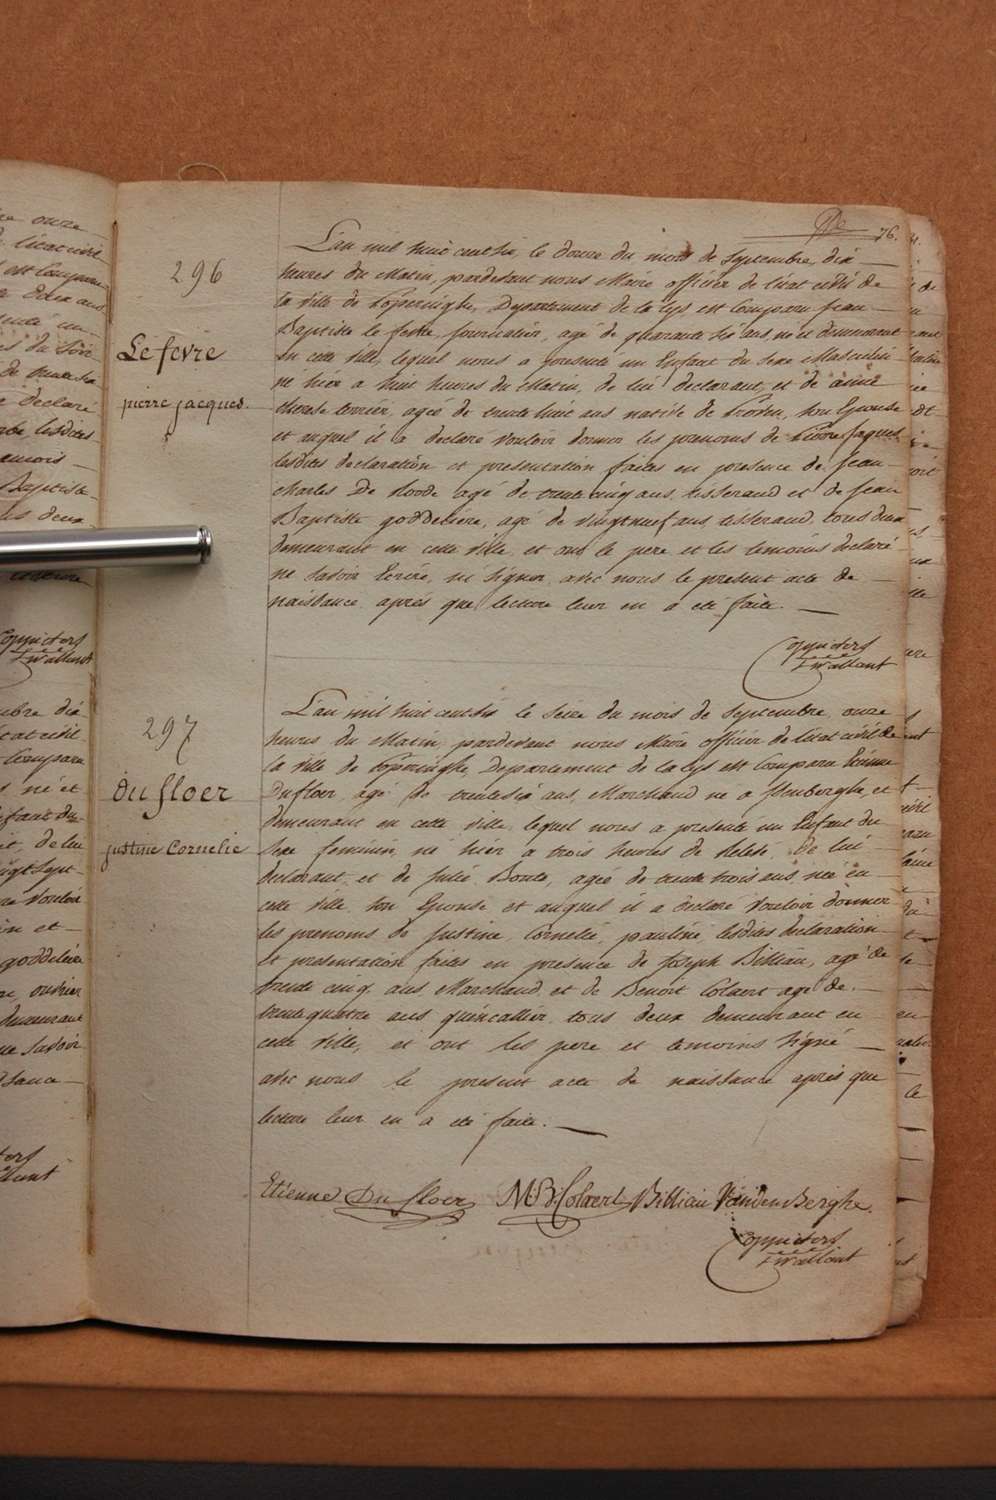 76.
296
Le fevre
pierre jacques.
L'an mil huit cent six, le douze du mois de Septembre, dix
heures du Matin, pardevant nous Maire officier de l'état civil de
la ville de Poperinghe, Departement de la Lys est Comparu jean
Baptiste le fevre, journalier, agé de quarante six ans, né et demeurant
en cette ville, lequel nous a presenté un Enfant du sexe Masculin
né hier a huit heures du Matin, de lui declarant, et de anne
therese agée de trente huit ans native de son Epouse
et auquel il a declaré vouloir donner les prenoms de Pierre Jaques
lesdites declaration et presentation faites en presence de jean
charles De Roode agé de trente cinq ans, tisserand et de jean
Baptiste goddeliere, agé de vingt neuf ans tisserand, tous deux
demeurant en cette ville, et ont le pere et les temoins declaré
ne savoir Ecrire, ni signer, avec nous le present acte de
naissance, après que lecture leur en a été faite.
297
du floer
justine Cornelie
L'an mil huit cent six le seize du mois de Septembre, onze
heures du Matin, pardevant nous Maire officier de l'état civil de
la ville de Poperinghe, Departement de la Lys est Comparu Etienne
Du floer, agé de trente six ans, Marchand né a et
demeurant en cette ville, lequel nous a presenté un Enfant du
sexe feminin, né hier a trois heures de Relevé, de lui
declarant, et de julie Bonte, agée de trente trois ans, née en
cette ville, son Epouse et auquel il a declaré vouloir donner
les prenoms de justine, Cornelie, pauline, lesdites declaration
et presentation faites en presence de joseph Billiau, agé de
trente cinq ans, Marchand, et de Benoit Colaert agé de
trente quatre ans quincallier, tous deux demeurant en
cette ville, et ont les pere et temoins signé
avec nous le present acte de naissance après que
lecture leur en a été faite.
Etienne Du floer M: B: Colaert Billiau Vanden Berghe.